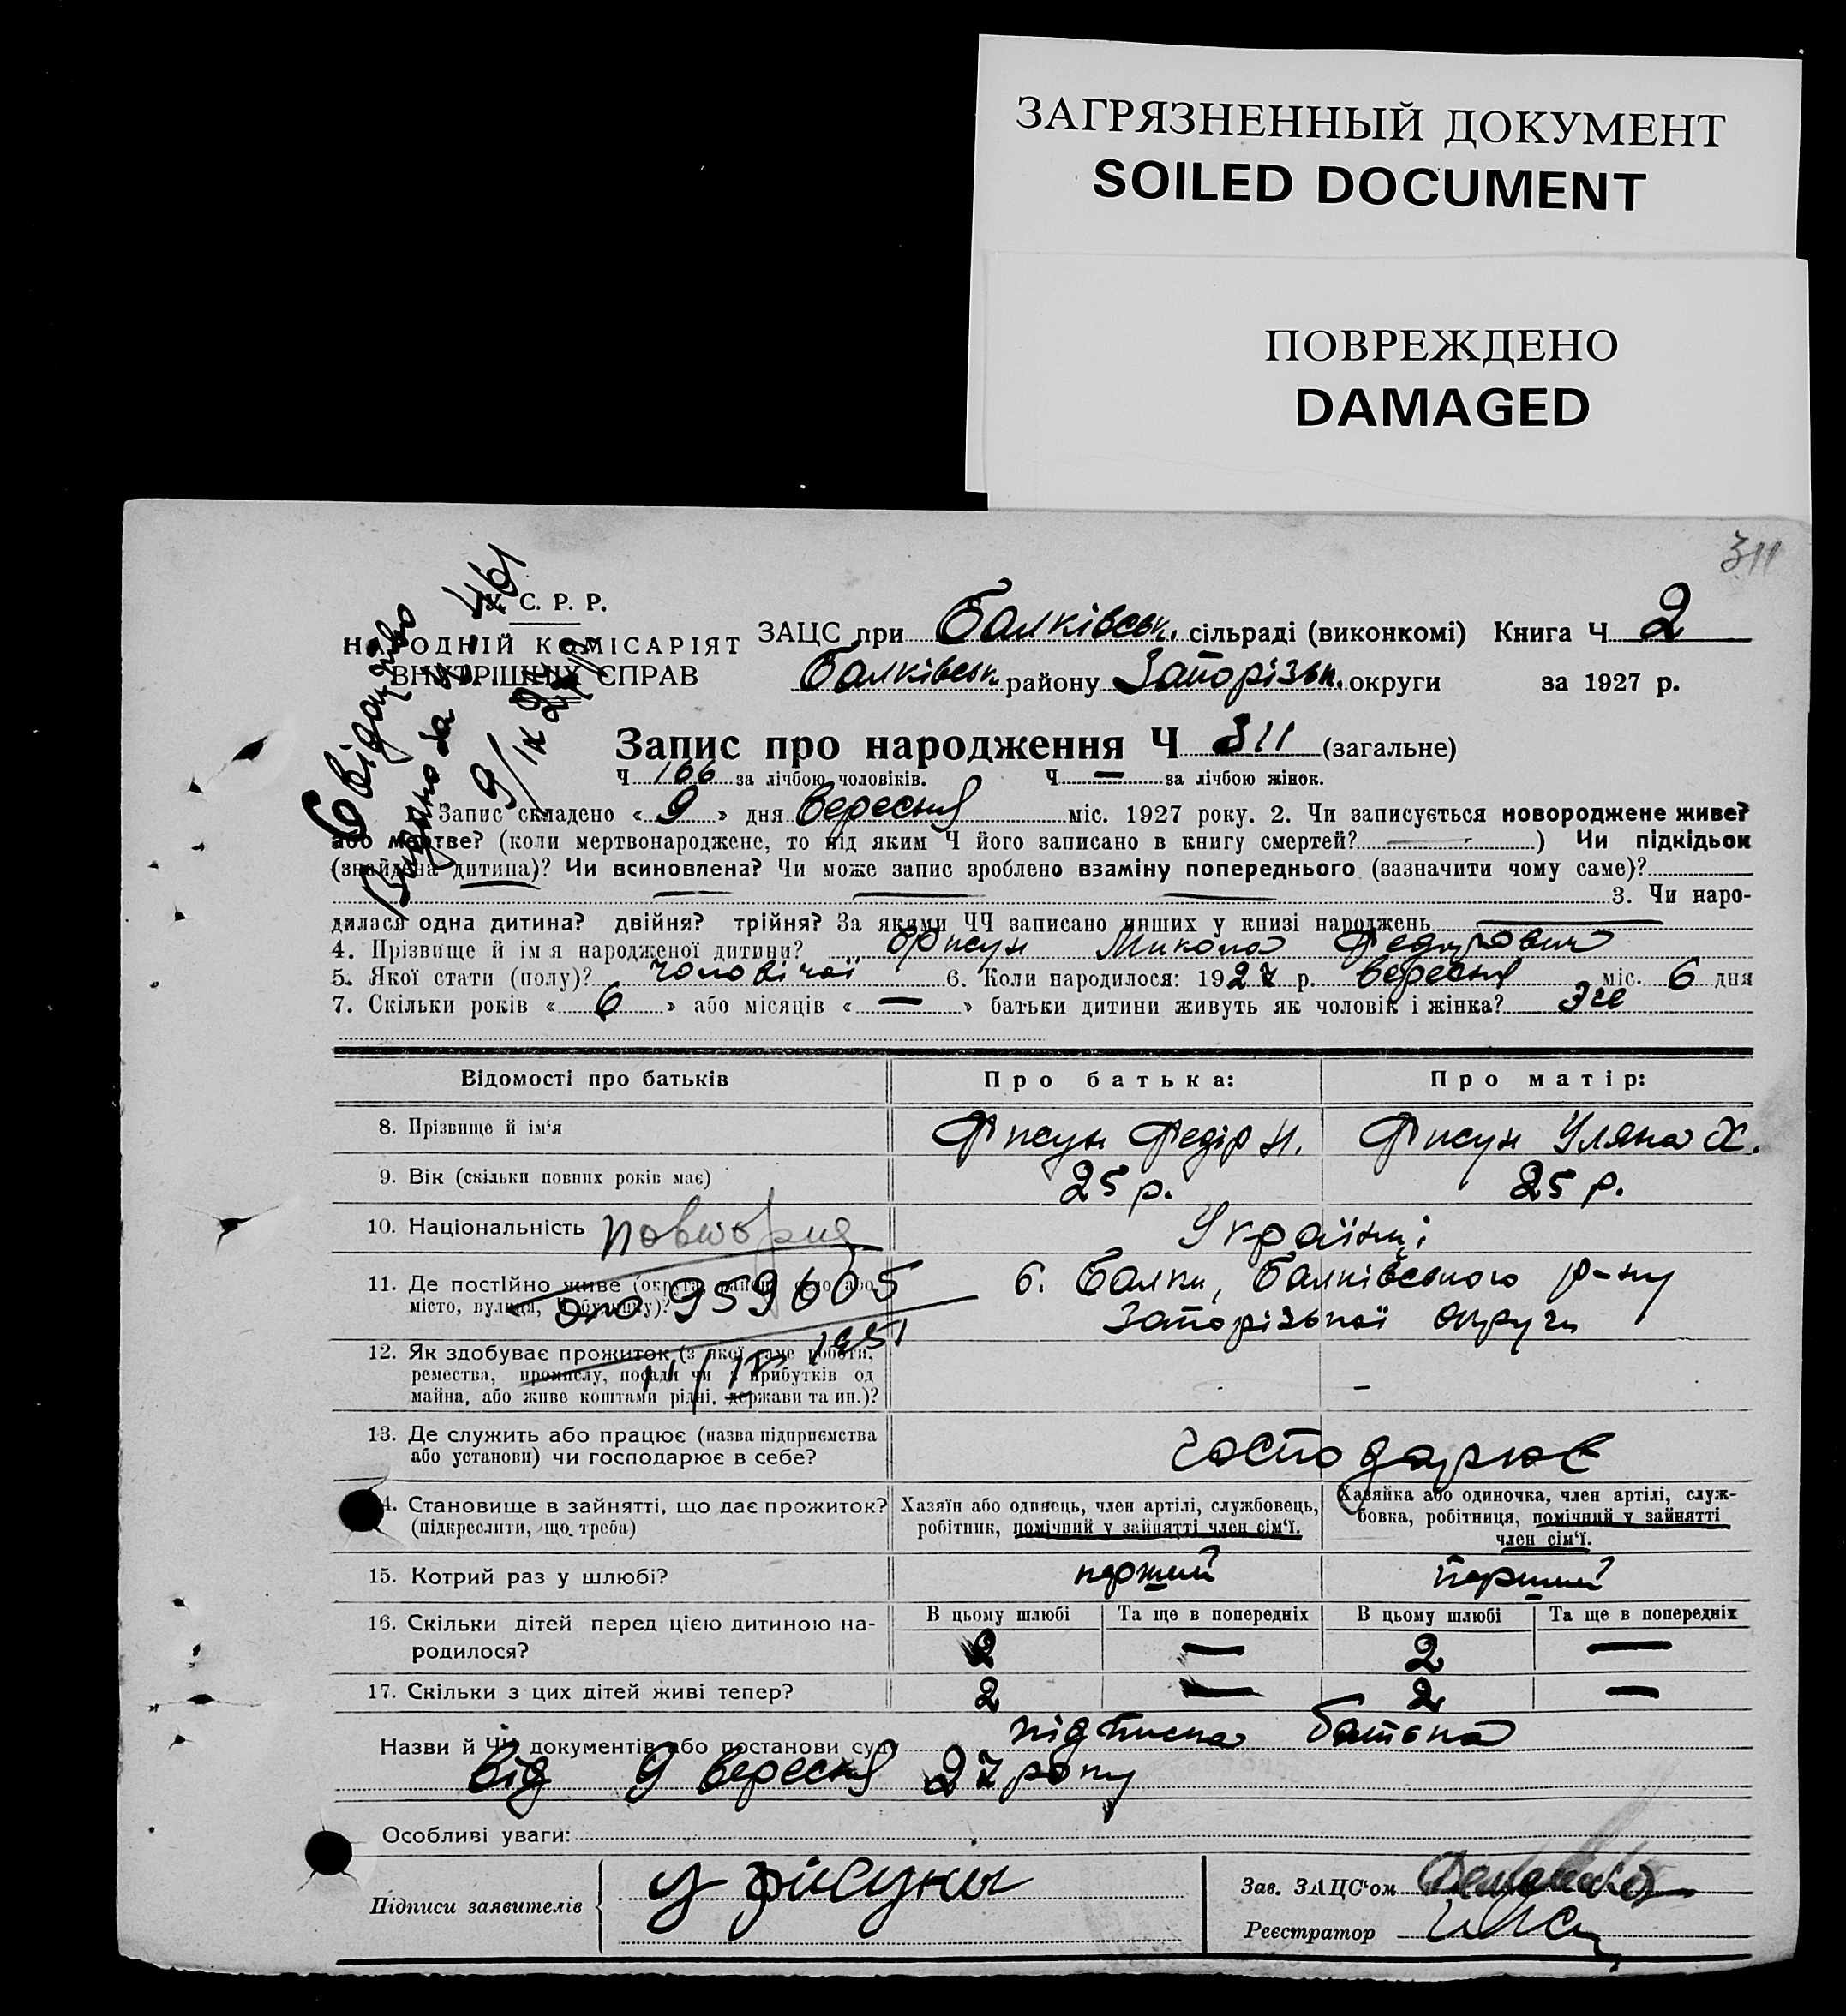 ЗАГРЯЗНЕННЫЙ ДОКУМЕНТ
SOILED DOCUMENT
ПОВРЕЖДЕНО
DAMAGED
311
У. С. Р. Р.
НАРОДНІЙ КОМІСАРІЯТ
ВНУТРІШНІХ СПРАВ
Свідоцтво
Видано за № 461
9/IX 27 р
ЗАЦС при Балківськ. сільраді (виконкомі) Книга Ч 2
Балківськ. району Запорізьк. округи за 1927 р.
Запис про народження Ч 311 (загальне)
Ч 166 за лічбою чоловіків. Ч — за лічбою жінок.
1. Запис складено « 9 » дня вересня міс. 1927 року. 2. Чи записується новороджене живе?
або мертве? (коли мертвонароджене, то під яким Ч його записано в книгу смертей? — ) Чи підкідьок
(знайдена дитина)? Чи всиновлена? Чи може запис зроблено взаміну попереднього (зазначити чому саме)?
3. Чи наро-
дилася одна дитина? двійня? трійня? За якими ЧЧ записано инших у книзі народжень —
4. Прізвище й ім'я народженої дитини? Фисун Микола Федорович
5. Якої стати (полу)? чоловічої 6. Коли народилося: 1927 р. вересня міс. 6 дня
7. Скільки років « 6 » або місяців « — » батьки дитини живуть як чоловік і жінка?
Відомості про батьків Про батька: Про матір:
8. Прізвище й ім'я Фисун Федір Н. Фисун Уляна Х.
9. Вік (скільки повних років має) 25 р. 25 р.
10. Національність Українці
повторня
11. Де постійно живе (округа, район, село або
місто, вулиця, Ч будинку)?
с. Балки, Балківського р-ну
Запорізької округи
959605
1951
12. Як здобуває прожиток (з якої саме роботи,
ремества, промислу, посади чи з прибутків од
майна, або живе коштами рідні, держави та ин.)? —
13. Де служить або працює (назва підприємства
або установи) чи господарює в себе?
господарює
14. Становище в зайнятті, що дає прожиток?
(підкреслити, що треба)
Хазяїн або одинець, член артілі, службовець,
робітник, помічний у зайнятті член сім'ї.
Хазяйка або одиночка, член артілі, служ-
бовка, робітниця, помічний у зайнятті
член сім'ї.
15. Котрий раз у шлюбі? перший перший
16. Скільки дітей перед цією дитиною на-
родилося?
В цьому шлюбі Та ще в попередніх В цьому шлюбі Та ще в попередніх
2 — 2 —
17. Скільки з цих дітей живі тепер? 2 — 2 —
Назви й ЧЧ документів або постанови суду підписка батька
від 9 вересня 27 року
Особливі уваги:
Підписи заявителів у фисуны
Зав. ЗАЦС'ом
Реєстратор